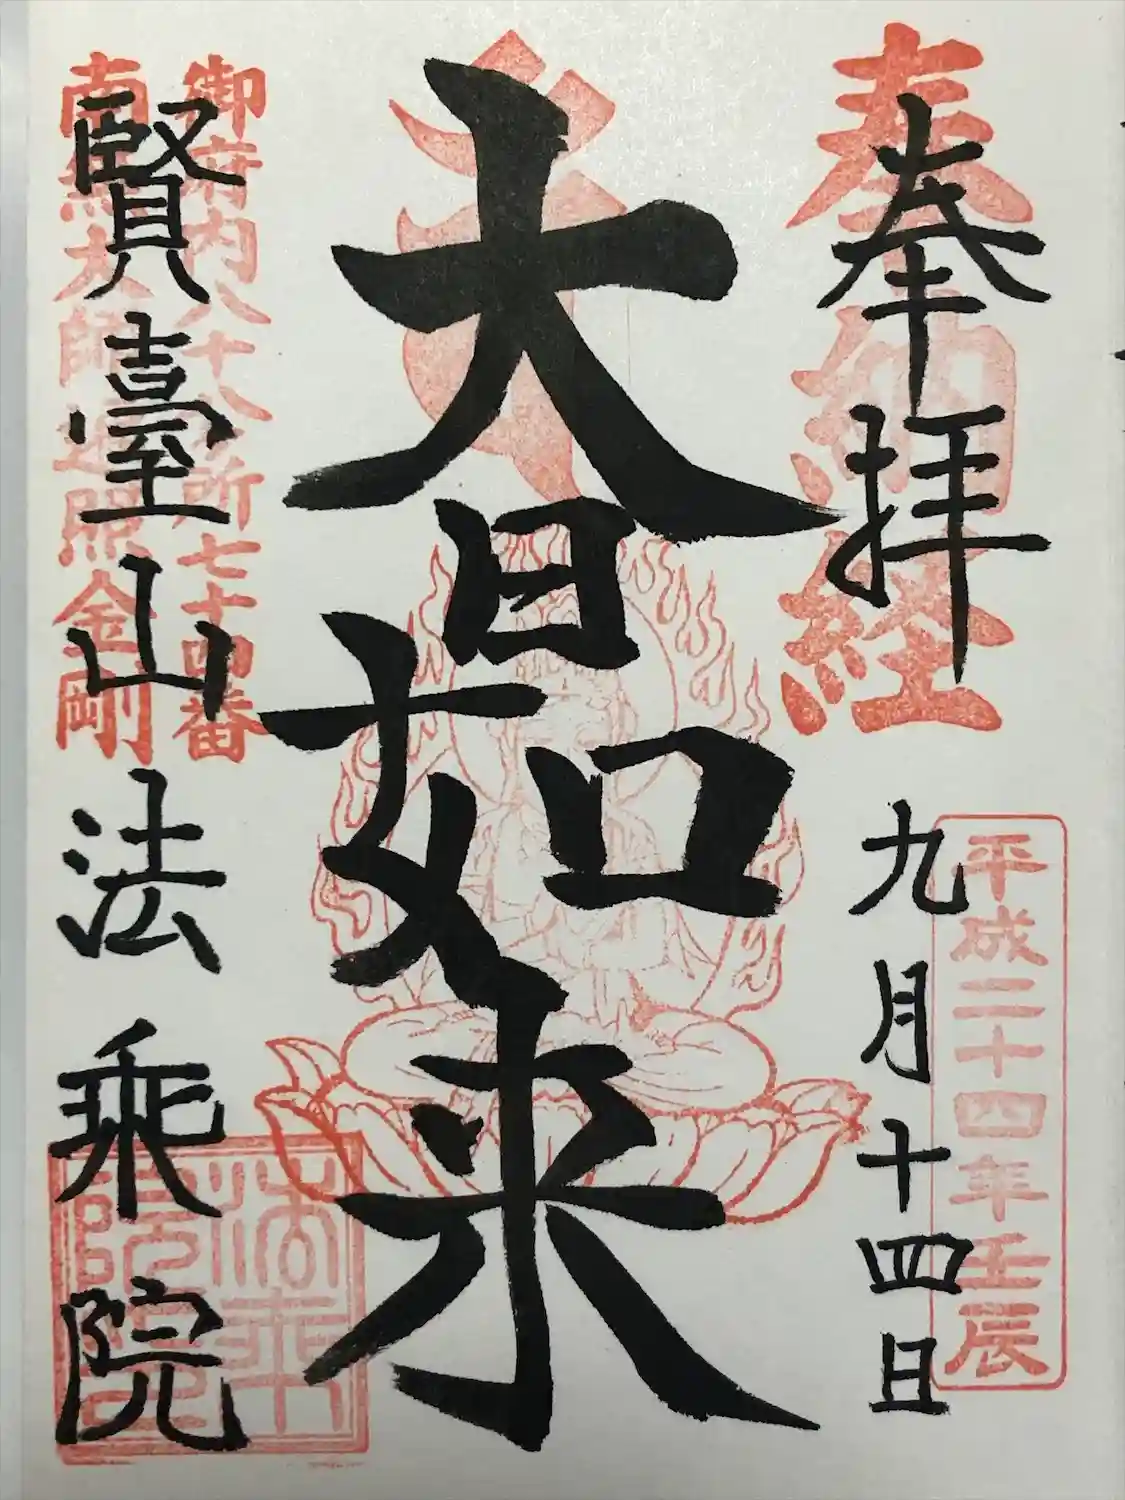 奉納経
奉拝
平成二十四年壬辰
九月十四日
大日如来
御府内八十八所七十四番
南無大師遍照金剛
賢臺山法乗院
法乗院印